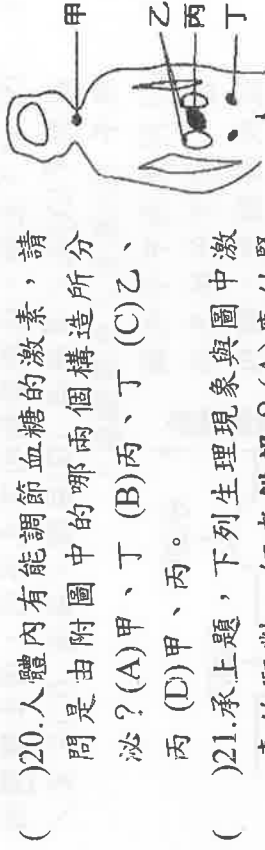 (　)20.人體內有能調節血糖的激素，請
問是由附圖中的哪兩個構造所分
泌？(A)甲、丁 (B)丙、丁 (C)乙、
丙 (D)甲、丙。
(　)21.承上題，下列生理現象與圖中激
甲
乙
丙
丁